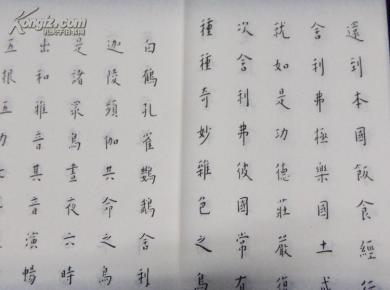 還到本國飯食經行
舍利弗極樂國土成
就如是功德莊嚴復
次舍利弗彼國常有
種種奇妙雜色之鳥
白鶴孔雀鸚鵡舍利
迦陵頻伽共命之鳥
是諸眾鳥晝夜六時
出和雅音其音演暢
五根五力